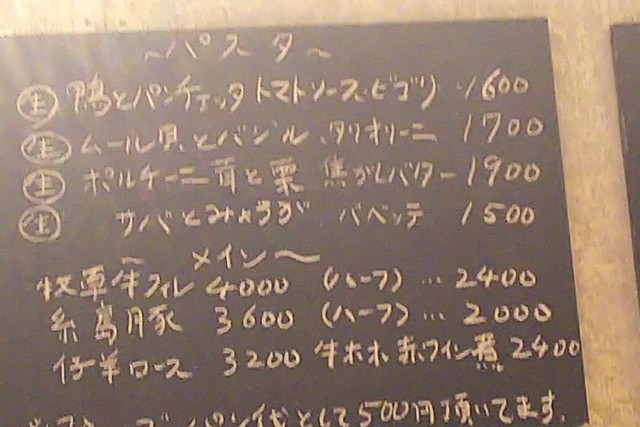 ～パスタ～
生 鴨とパンチェッタ トマトソース、ビゴリ 1600
生 ムール貝とバジル、タリオリーニ 1700
生 ポルケーニ茸と栗 焦がしバター 1900
生 サバとみょうが バベッテ 1500
～メイン～
牧草牛フィレ 4000 (ハーフ)… 2400
糸島豚 3600 (ハーフ)… 2000
仔羊ロース 3200 牛ホホ 赤ワイン煮 2400
パン代として500円頂いてます。